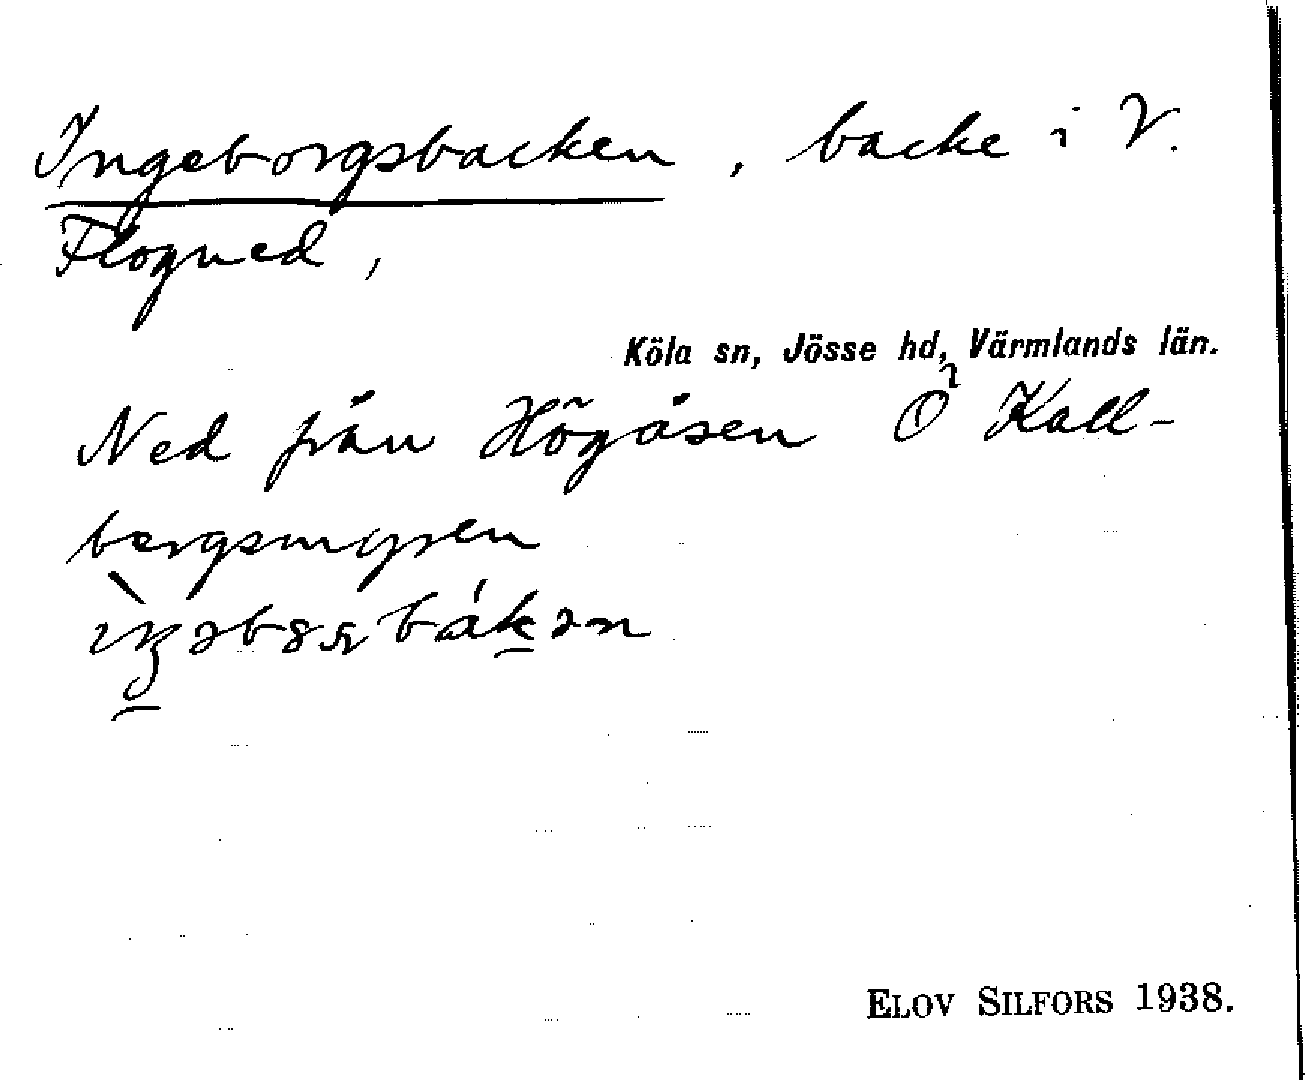 Ingeborgsbacken, backe i V.
Flogned,
Köla sn, Jösse hd, Värmlands län.
Ned från Högåsen Ö Kall-
bergsmyren
ELOV SILFORS 1938.